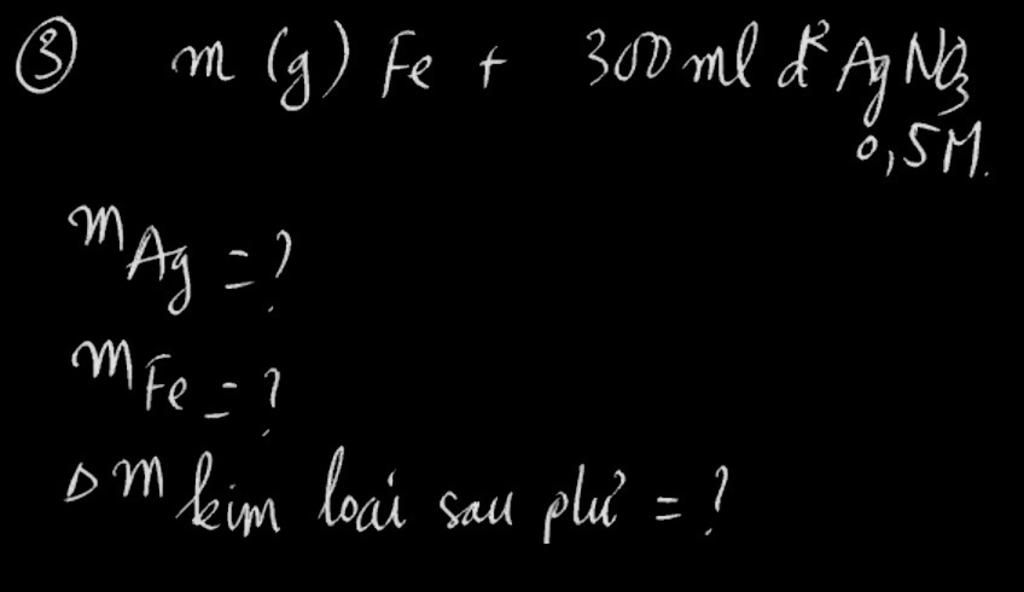 ③ m (g) Fe + 300 ml d² AgNO₃
0,5M.
m Ag = ?
m Fe = ?
Δm kim loại sau pứ = ?